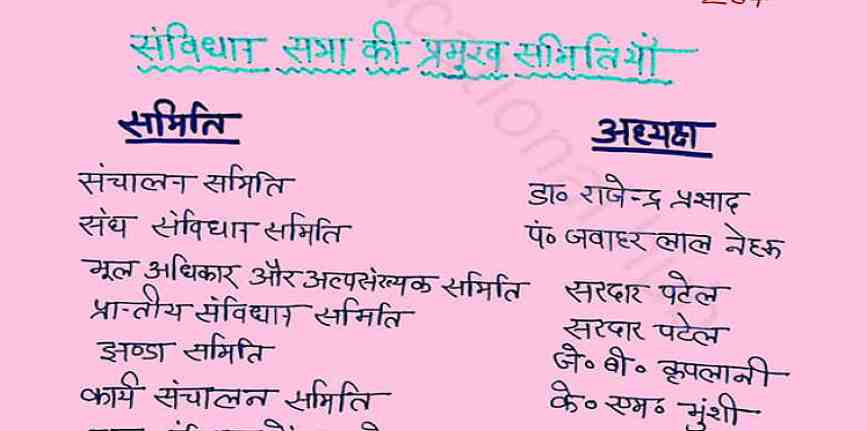 संविधान सभा की प्रमुख समितियाँ
समिति अध्यक्ष
संचालन समिति डा० राजेन्द्र प्रसाद
संघ संविधान समिति पं० जवाहर लाल नेहरू
मूल अधिकार और अल्पसंख्यक समिति सरदार पटेल
प्रान्तीय संविधान समिति सरदार पटेल
झण्डा समिति जे० बी० कृपलानी
कार्य संचालन समिति के० एम० मुंशी